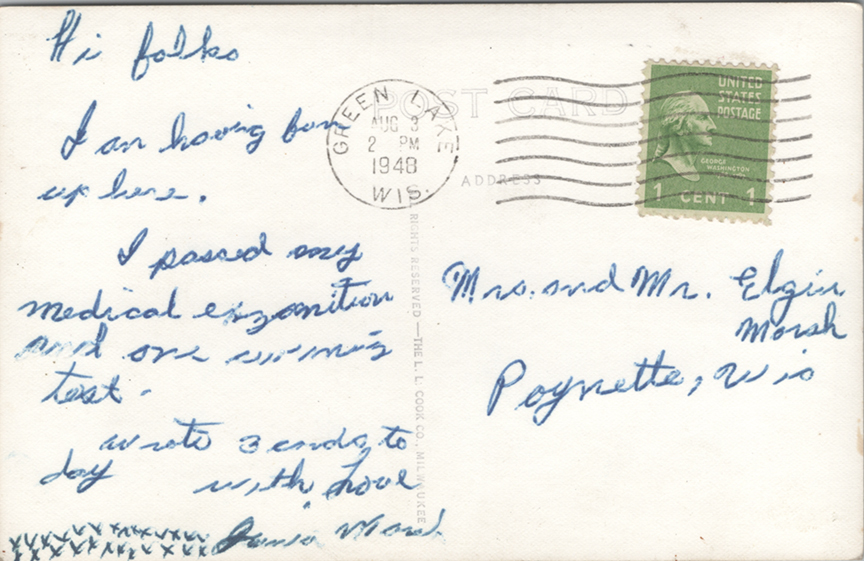 Hi folks
I am having fun
up here.
I passed my
medical exzamition
and one swimming
test.
wrote 3 cards to
day
with Love
Marsh
xxxxxxxxxxxxx
xxxxxxxxxxxx
POST CARD
ADDRESS
GREEN LAKE
AUG 3
2 PM
1948
WIS.
UNITED
STATES
POSTAGE
GEORGE
WASHINGTON
1 CENT 1
Mrs. and Mr. Elgin
Marsh
Poynette, Wis
ALL RIGHTS RESERVED—THE L. L. COOK CO., MILWAUKEE